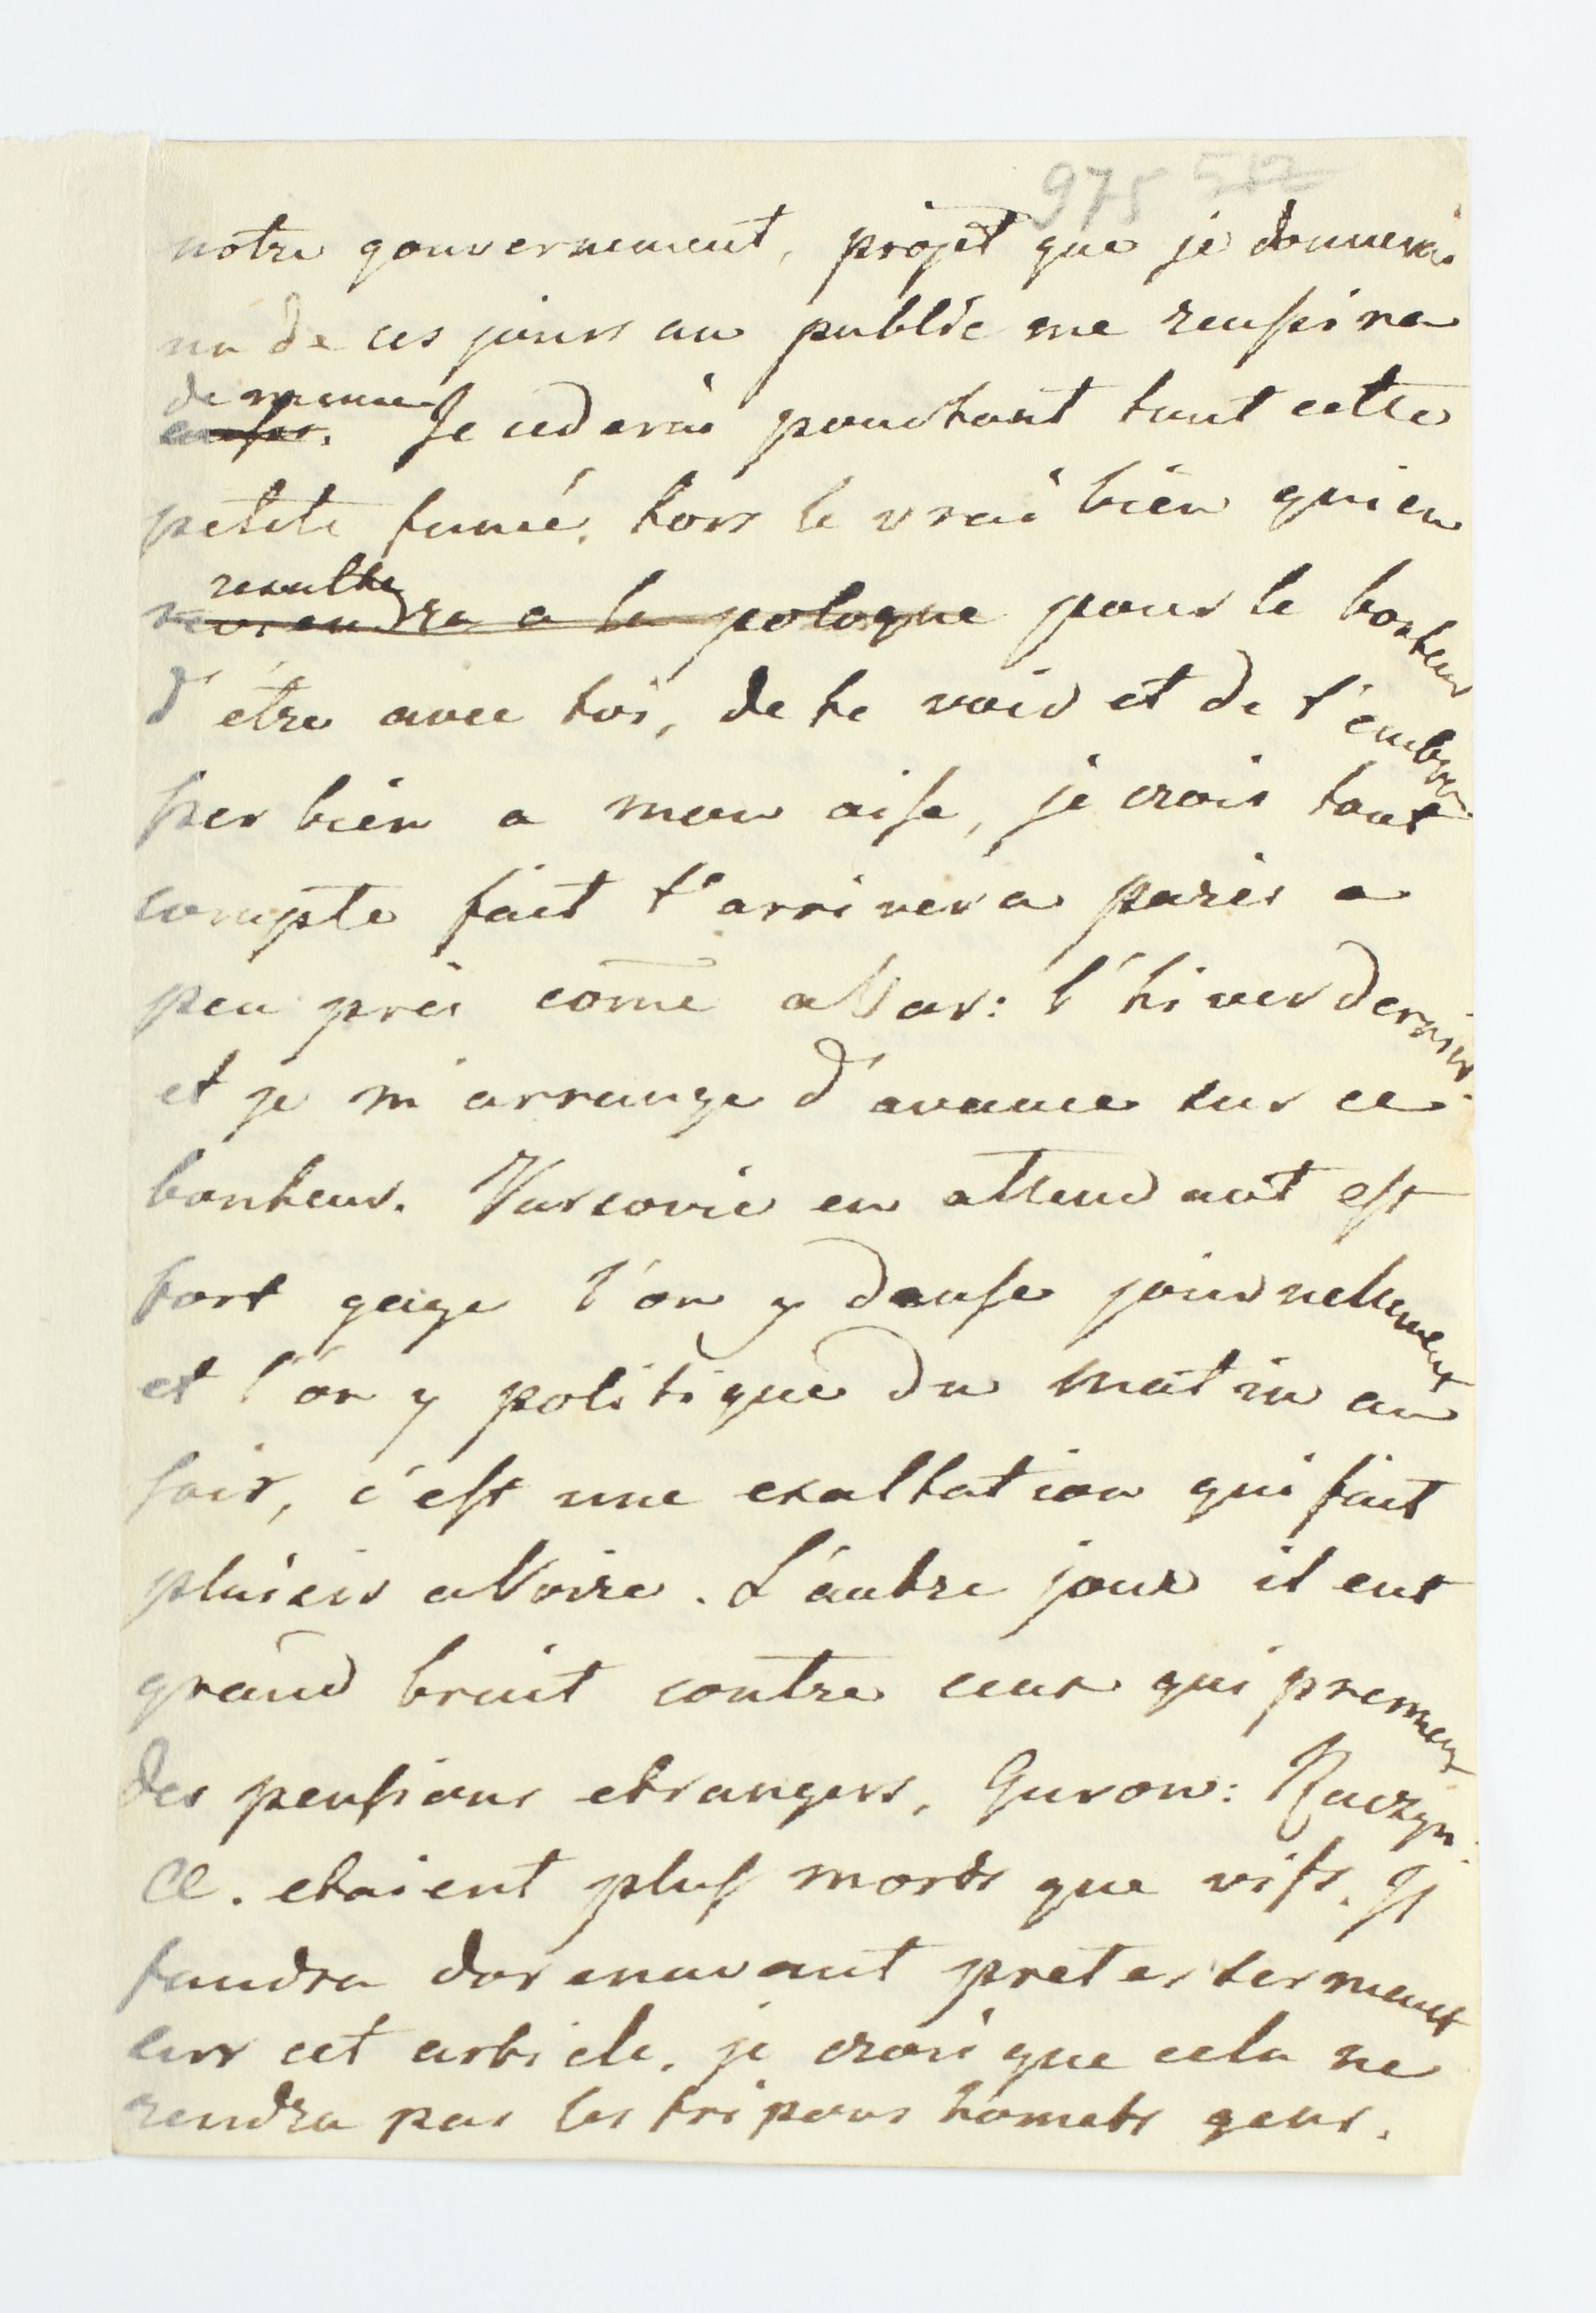 975 587
notre gouvernement, projet que je donnerai
un de ces jours au public me reussira
de meme
aussi. Je cederai pourtant tout cette
petite fumé, hors le vrai bien qui en
resulte
reviendra a la pologne pour le bonheur
d'étre avec toi, de te voir et de t'embras
ser bien a mon aise, je crois tout
compte fait t'arriver a paris a
peu prés come a Var: l'hiver dernier
et je m'arrange d'avance sur ce
bonheur. Varsovie en attendant est
fort gaye l'on y danse journellement
et l'on y politique du matin au
soir, c'est une exaltation qui fait
plaisir a Voire. L'autre jour il eut
grand bruit contre ceux qui prennent
des pensions etrangers, Gurow: Raczyn:
&. etaient plus morts que vifs. Il
faudra dorenavant preter serment
sur cet article. je crois que cela ne
rendra pas les fripons honnets gens.